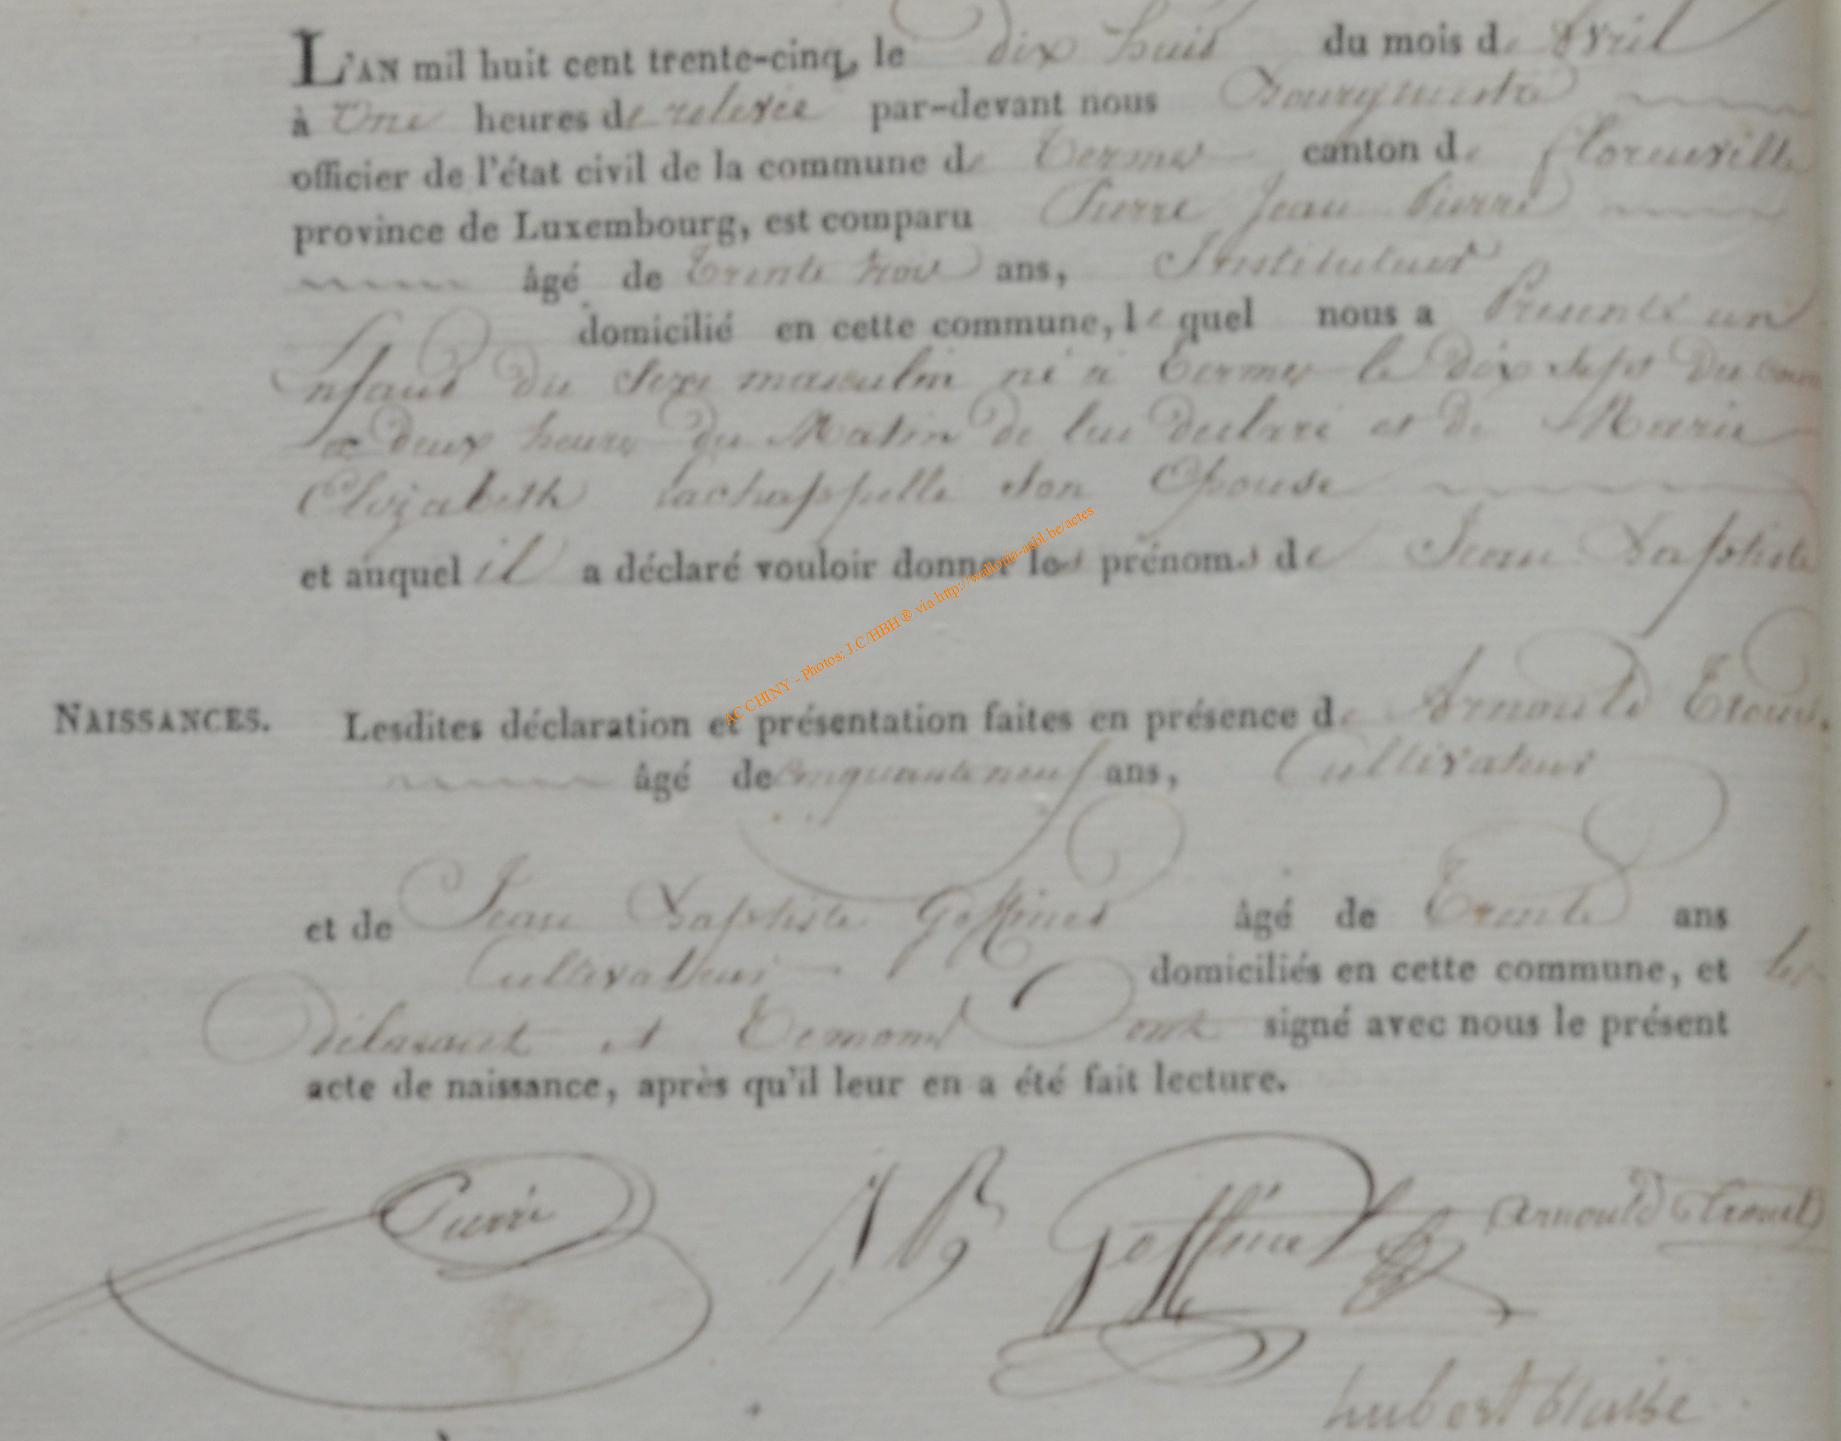 L'AN mil huit cent trente-cinq, le dix huit du mois d' avril
à Une heures de relevée par-devant nous Bourgmestre
officier de l'état civil de la commune de Termes canton de florenville
province de Luxembourg, est comparu Pierre Jean Pierre
âgé de Trente trois ans, Instituteur
domicilié en cette commune, lequel nous a Presenté un
Enfant du sexe masculin né a Termes le dix sept du
a deux heures du Matin de lui declaré et de Marie
Elizabeth lachappelle son Epouse
et auquel il a déclaré vouloir donner les prénoms de Jean Baptiste
NAISSANCES. Lesdites déclaration et présentation faites en présence d' Arnould
âgé de cinquante neuf ans, Cultivateur
et de Jean Baptiste Goffinet âgé de Trente ans
Cultivateur domiciliés en cette commune, et les
Déclarant et Temoins ont signé avec nous le présent
acte de naissance, après qu'il leur en a été fait lecture.
Pierre JB Goffinet Arnould
hubert blaise
AC CHINY - Photos: J.C/HBH ® via http://wallonia-asbl.be/actes